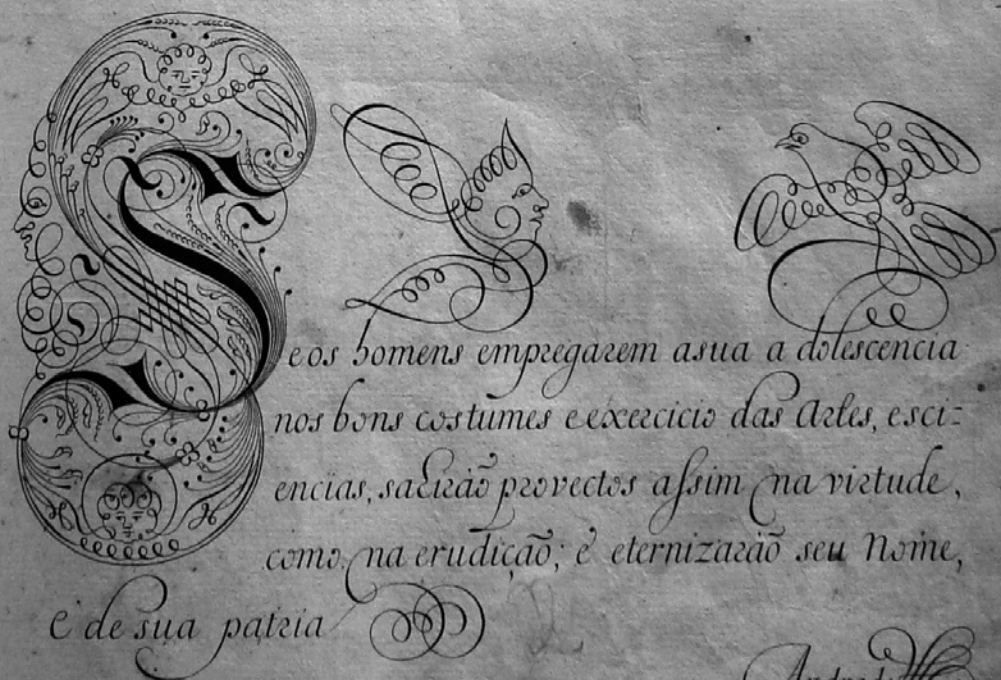 Se os homens empregarem a sua a dolescencia
nos bons costumes e exercicio das Artes, e sci-
encias, sahirão provectos assim na virtude,
como na erudição; e eternizarão seu Nome,
e de sua patria